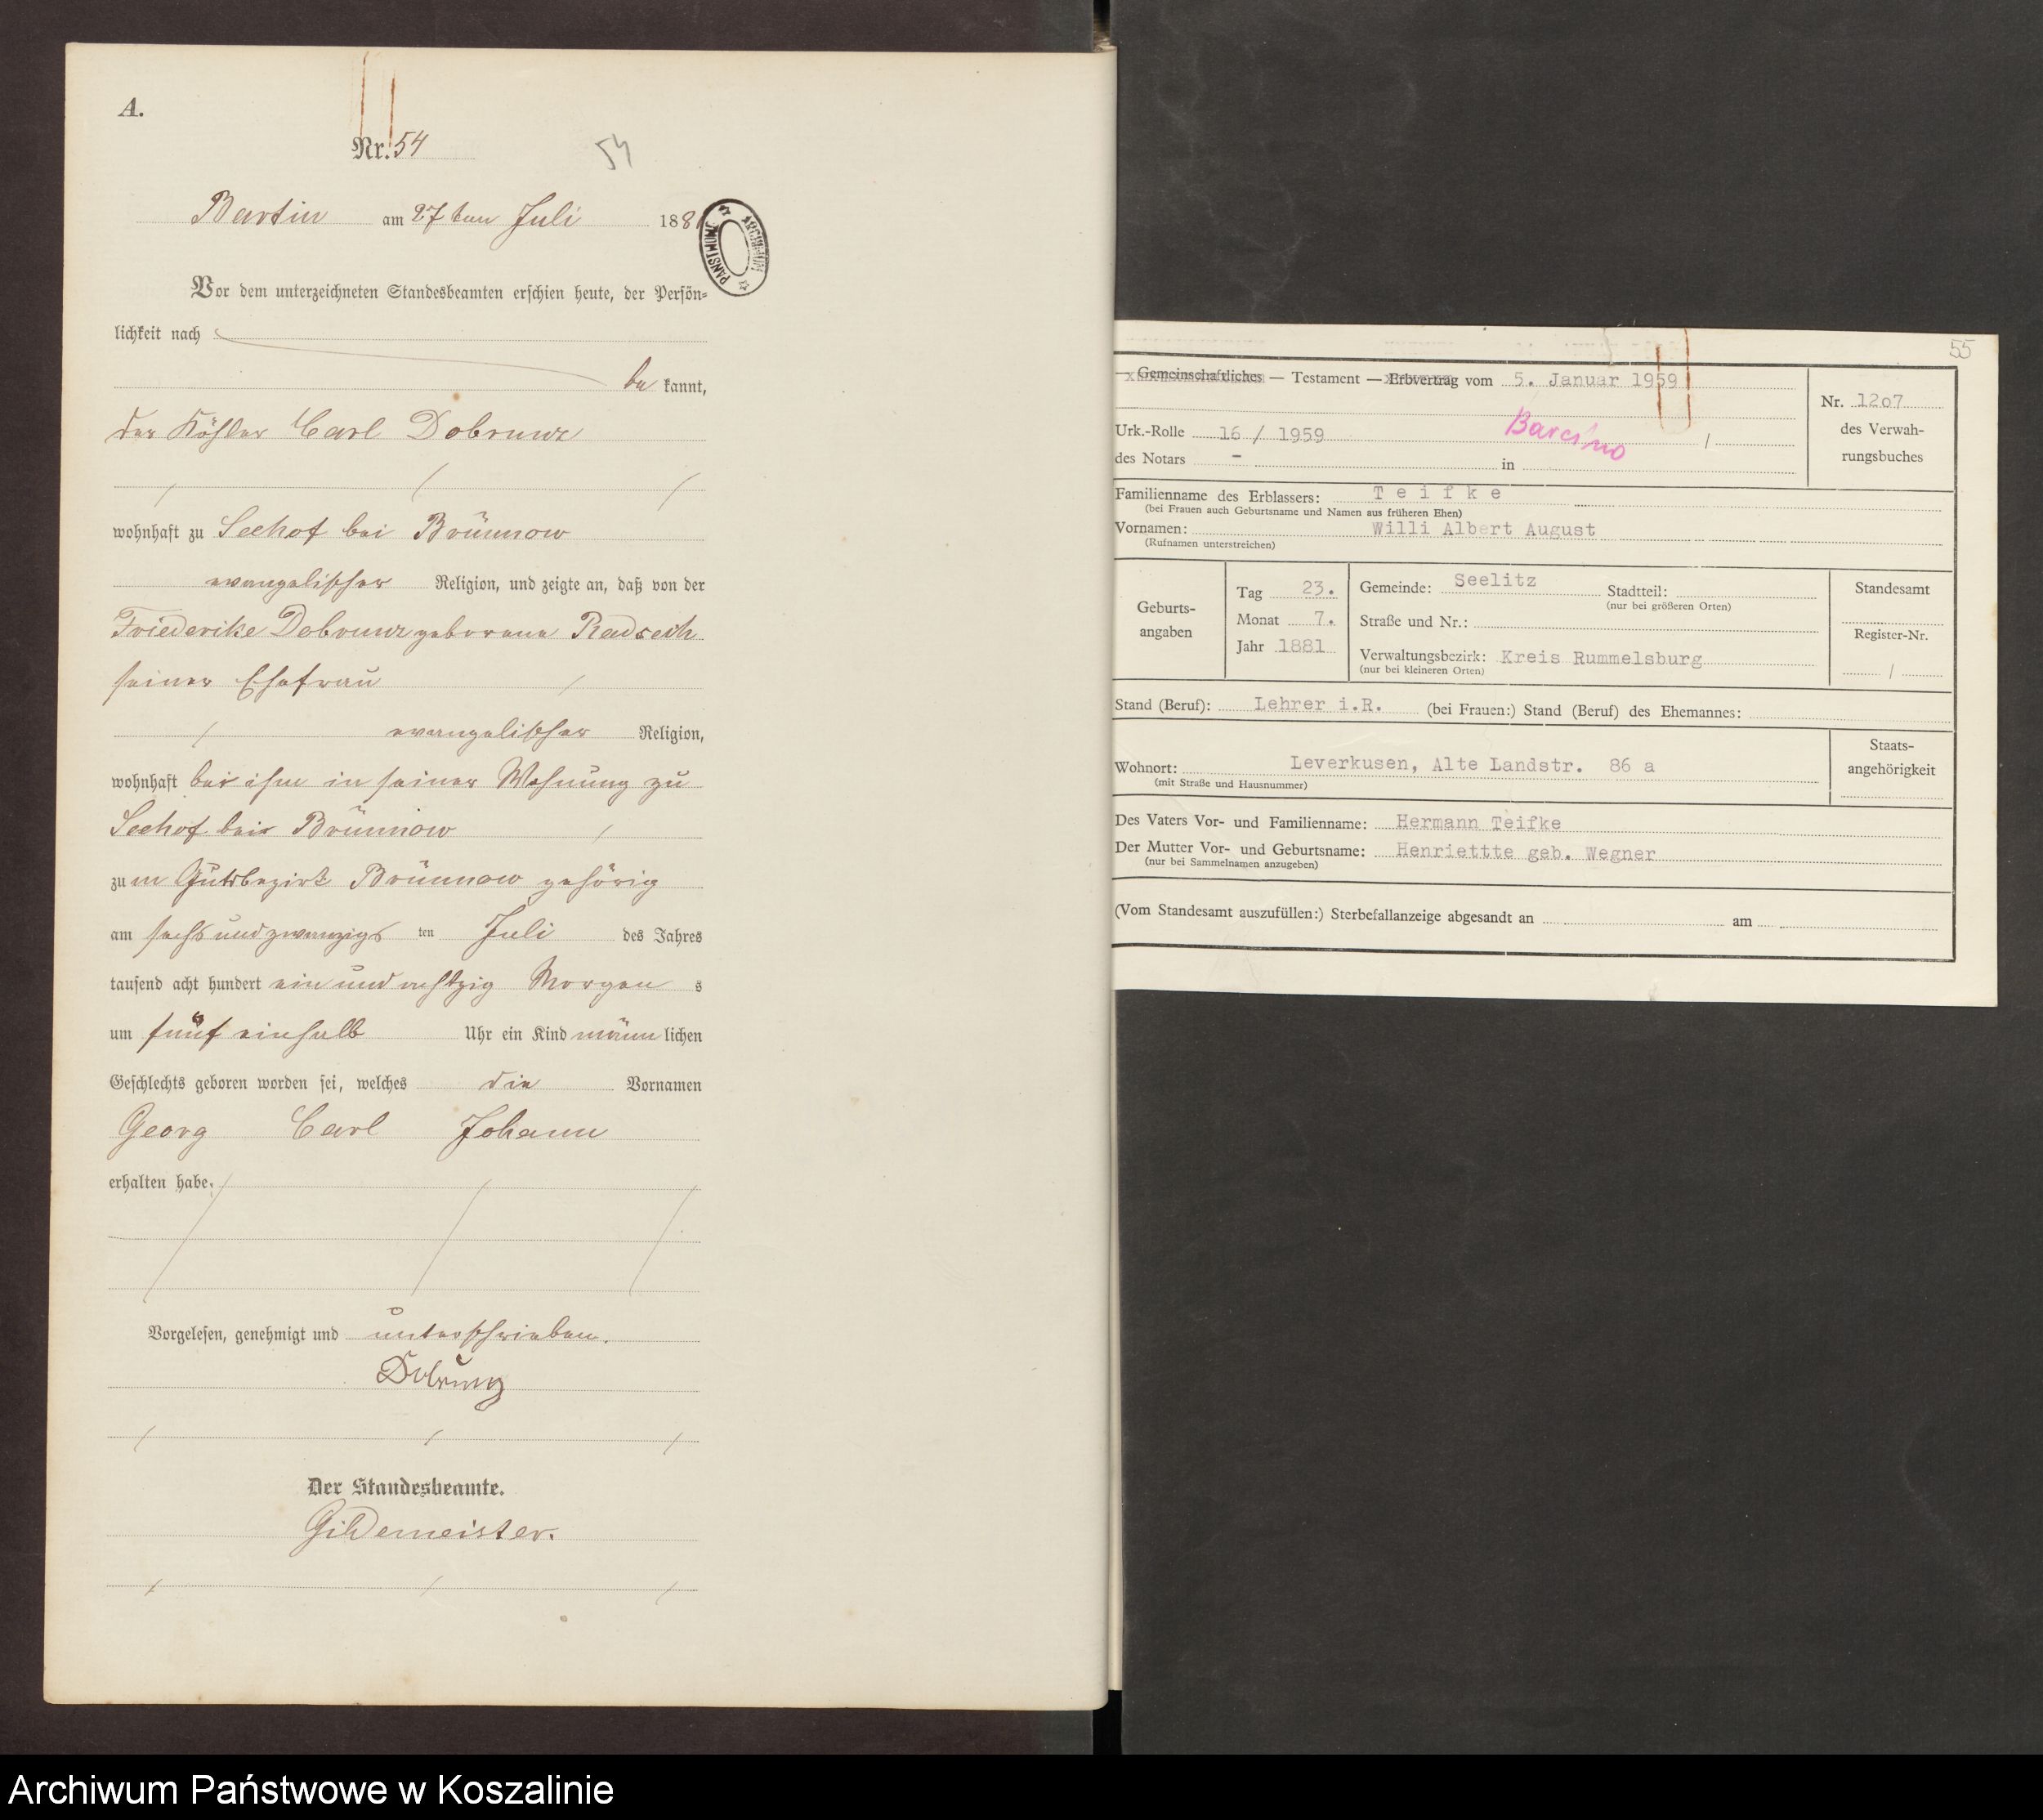 A.
Nr. 54
54
Bartin am 27ten Juli 1881
ARCHIWUM PAŃSTWOWE
Vor dem unterzeichneten Standesbeamten erschien heute, der Persön-
lichkeit nach
be kannt,
der Käthner Carl Dobrunz
wohnhaft zu Seehof bei Brünnow
evangelischer Religion, und zeigte an, daß von der
Friederike Dobrunz geborene Radsech
seiner Ehefrau
evangelischer Religion,
wohnhaft bei ihm in seiner Wohnung zu
Seehof bei Brünnow
zum Gutsbezirk Brünnow gehörig
am sechsundzwanzigs ten Juli des Jahres
tausend acht hundert ein und achtzig Morgen s
um fünf einhalb Uhr ein Kind männ lichen
Geschlechts geboren worden sei, welches die Vornamen
Georg Carl Johann
erhalten habe.
Vorgelesen, genehmigt und unterschrieben.
Dobrunz
Der Standesbeamte.
Gildemeister.
55
Gemeinschaftliches — Testament — Erbvertrag vom 5. Januar 1959
Nr. 1207
des Verwah-
rungsbuches
Urk.-Rolle 16 / 1959
Barcino
/
des Notars - in
Familienname des Erblassers: Teifke
(bei Frauen auch Geburtsname und Namen aus früheren Ehen)
Vornamen: Willi Albert August
(Rufnamen unterstreichen)
Geburts-
angaben
Tag 23.
Monat 7.
Jahr 1881
Gemeinde: Seelitz Stadtteil:
(nur bei größeren Orten)
Straße und Nr.:
Verwaltungsbezirk: Kreis Rummelsburg
(nur bei kleineren Orten)
Standesamt
Register-Nr.
/
Stand (Beruf): Lehrer i.R. (bei Frauen:) Stand (Beruf) des Ehemannes:
Wohnort: Leverkusen, Alte Landstr. 86 a
(mit Straße und Hausnummer)
Staats-
angehörigkeit
Des Vaters Vor- und Familienname: Hermann Teifke
Der Mutter Vor- und Geburtsname: Henriettte geb. Wegner
(nur bei Sammelnamen anzugeben)
(Vom Standesamt auszufüllen:) Sterbefallanzeige abgesandt an am
Archiwum Państwowe w Koszalinie